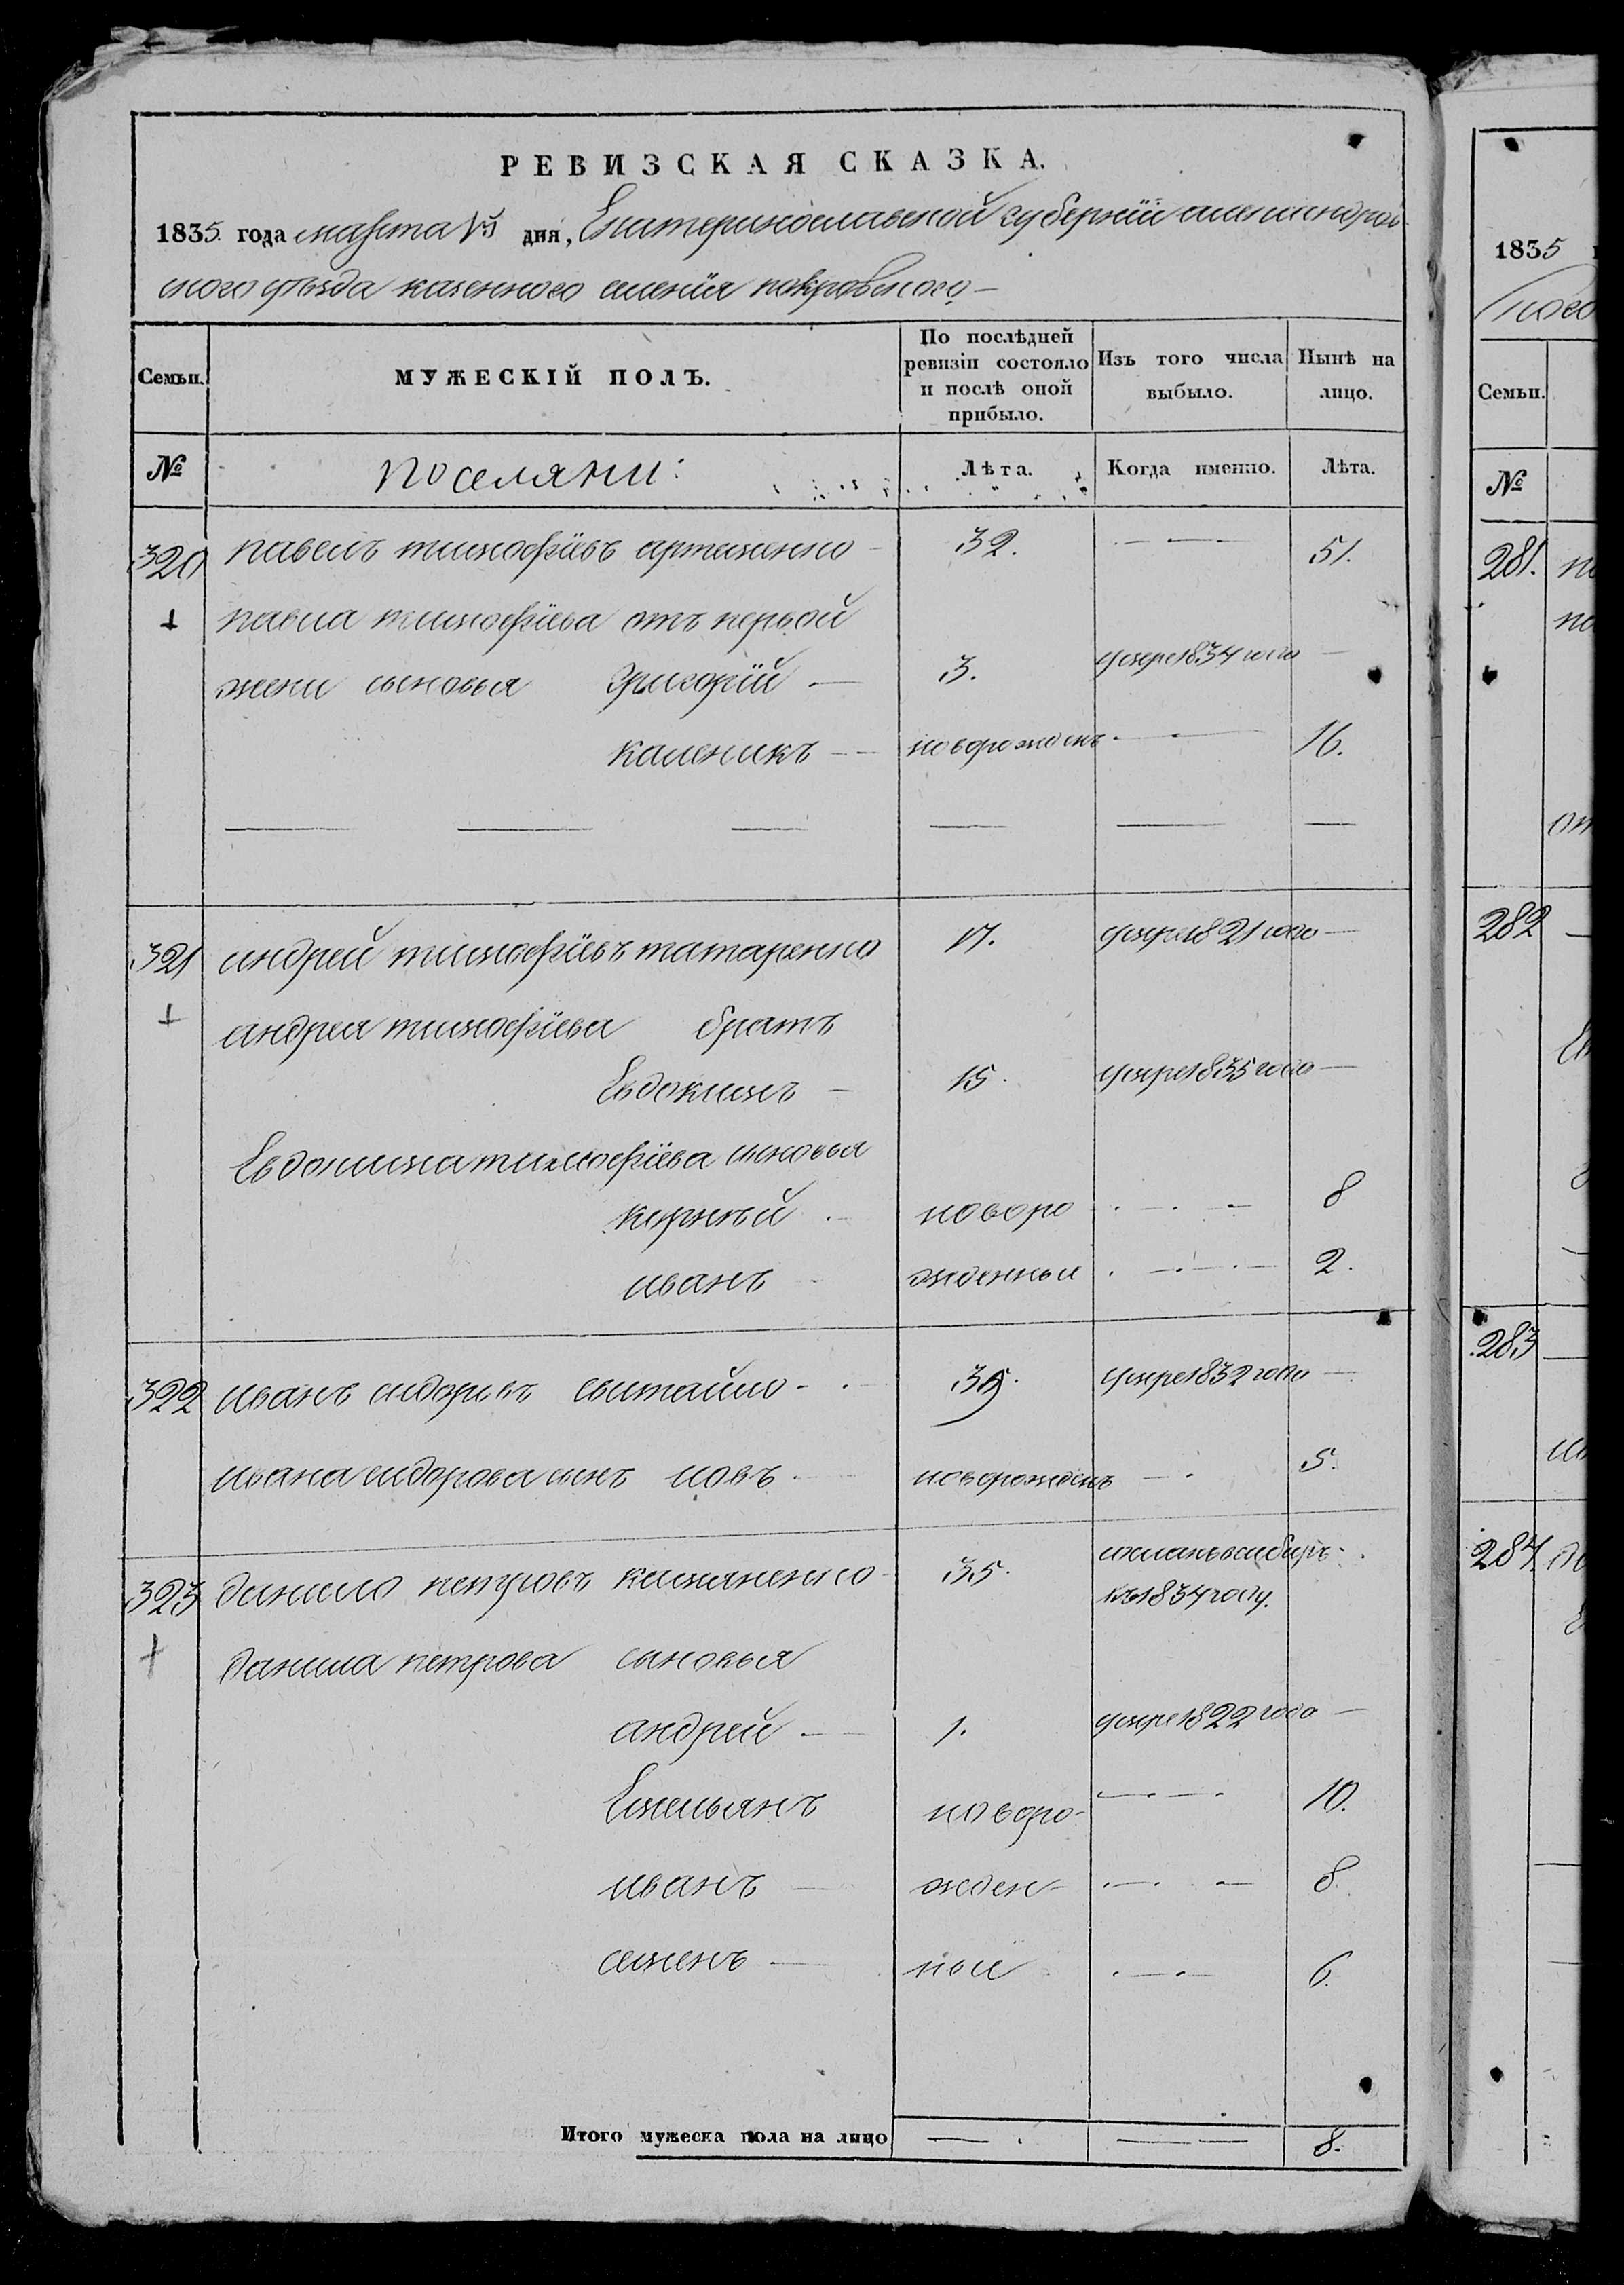 РЕВИЗСКАЯ СКАЗКА.
1835 года марта 15 дня, Екатеринославской губернїи александров
ского уѣзда казенного имѣнїя покровского
Семьи. МУЖЕСКІЙ ПОЛЪ. По послѣдней ревизіи состояло и послѣ оной прибыло. Изъ того числа выбыло. Нынѣ на лицо.
№ поселяни: Лѣта. Когда именно. Лѣта.
320 павелъ тимофїевъ артюненко 32. 51.
павла тимофїева отъ первой
жени сыновья Григорїй 3. умре 1834 года
каленикъ новорожденъ 16.
321 андрей тимофїевъ татаренко 17. умре 1821 года
андрея тимофїева братъ
Евдокимъ 15. умре 1835 года
Евдокима тимофїева сыновья
корнѣй новоро 8
иванъ жденныи 2.
322 иванъ сидоровъ свитайло 35. умре 1832 года
ивана сидорова сынъ иовъ новорожденъ 5.
323 данило петровъ 35. сосланъ в сибирь
въ 1834 году.
данила петрова сыновья
андрей 1. умре 1822 года
Емельянъ новоро- 10.
иванъ жден- 8.
семенъ ныи 6.
Итого мужеска пола на лицо 8.
1835
Семьи.
№
281.
282
283
284